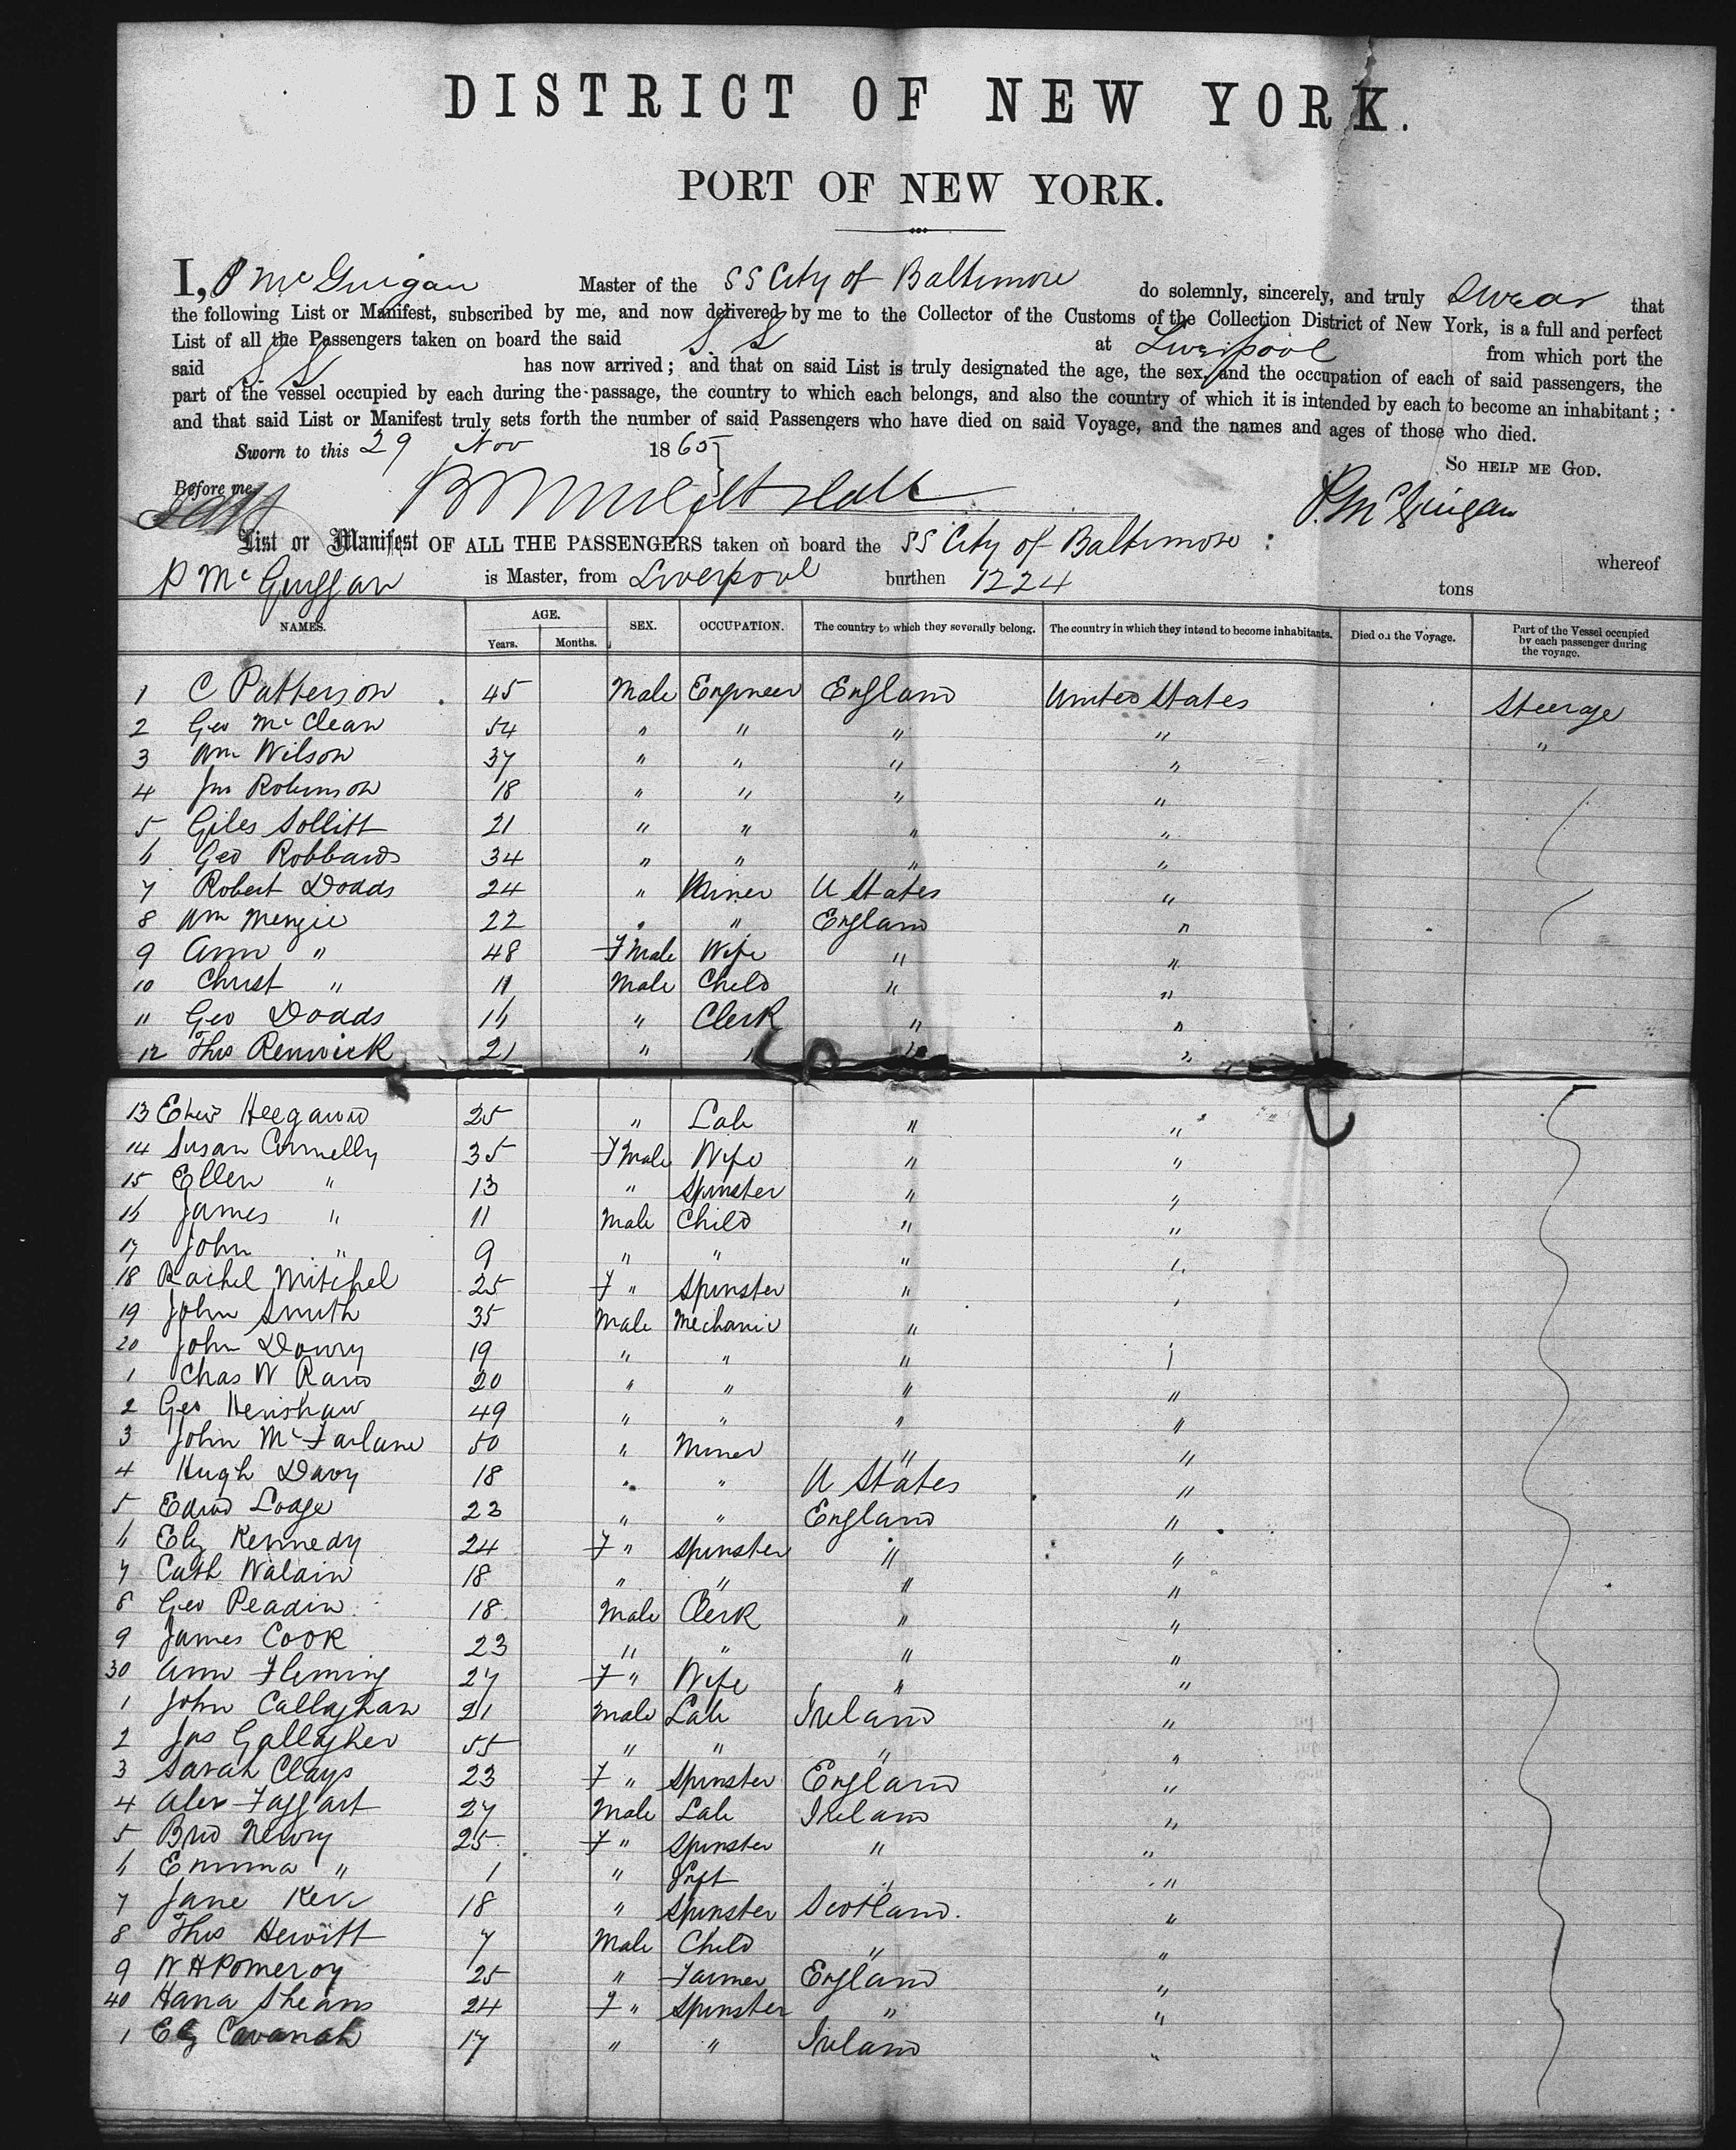 DISTRICT OF NEW YORK.
PORT OF NEW YORK.
I, P McGuigan Master of the SS City of Baltimore do solemnly, sincerely, and truly Swear that
the following List or Manifest, subscribed by me, and now delivered by me to the Collector of the Customs of the Collection District of New York, is a full and perfect
List of all the Passengers taken on board the said S. S at Liverpool from which port the
said S. S has now arrived; and that on said List is truly designated the age, the sex, and the occupation of each of said passengers, the
part of the vessel occupied by each during the passage, the country to which each belongs, and also the country of which it is intended by each to become an inhabitant;
and that said List or Manifest truly sets forth the number of said Passengers who have died on said Voyage, and the names and ages of those who died.
Sworn to this 29 Nov 1865
SO HELP ME GOD.
Before me,
P. McGuigan
List or Manifest OF ALL THE PASSENGERS taken on board the SS City of Baltimore : whereof
P McGuiggan is Master, from Liverpool burthen 1224 tons
NAMES. AGE. Years. Months. SEX. OCCUPATION. The country to which they severally belong. The country in which they intend to become inhabitants. Died on the Voyage. Part of the Vessel occupied by each passenger during the voyage.
1 C Patterson 45 Male Engineer England United States Steerage
2 Geo McClean 54 " " " " "
3 Wm Wilson 37 " " " "
4 Jno Robinson 18 " " " "
5 Giles Sollitt 21 " " " "
6 Geo Robbards 34 " " " "
7 Robert Dodds 24 " Miner U States "
8 Wm Menzie 22 " " England "
9 Ann " 48 F Male Wife " "
10 Christ " 11 Male Child " "
11 Geo Dodds 16 " Clerk " "
12 Thos Renwick 21 " " " "
13 25 " Lab " "
14 Susan Connelly 35 F Male Wife " "
15 Ellen " 13 " Spinster " "
16 James " 11 Male Child " "
17 John " 9 " " " "
18 Rachel Mitchel 25 F " Spinster " "
19 John Smith 35 Male Mechanic "
20 John Dowry 19 " " " "
1 Chas W Rand 20 " " " "
2 Geo Henshaw 49 " " " "
3 John McFarlane 50 " Miner " "
4 Hugh Davy 18 " " U States "
5 Edwd Lodge 23 " " England "
6 Elz Kennedy 24 F " Spinster " "
7 Cath Waldin 18 " " " "
8 Geo Peadin 18 Male Clerk " "
9 James Cook 23 " " " "
30 Ann Fleming 27 F " Wife " "
1 John Callaghan 21 Male Lab Ireland "
2 Jas Gallagher 55 " " " "
3 Sarah Clays 23 F " Spinster England "
4 Alex Taggart 27 Male Lab Ireland "
5 Brid Newry 25 F " Spinster " "
6 Emma " 1 " Inft " "
7 Jane Kerr 18 " Spinster Scotland. "
8 Thos Hewitt 7 Male Child " "
9 W H Pomeroy 25 " Farmer England "
40 Hana Sheans 24 F " Spinster " "
1 Elz Cavanah 17 " " Ireland "